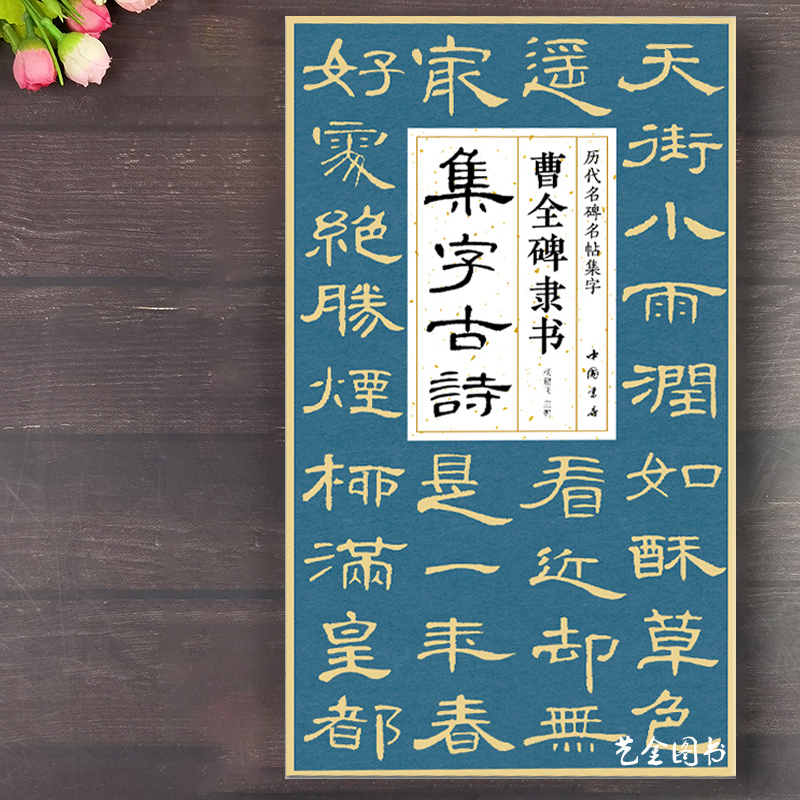 天街小雨潤如酥草色
遥看近却無
最是一年春
好處絕勝煙柳滿皇都
历代名碑名帖集字
中国书店
曹全碑隶书
集字古詩
艺全图书